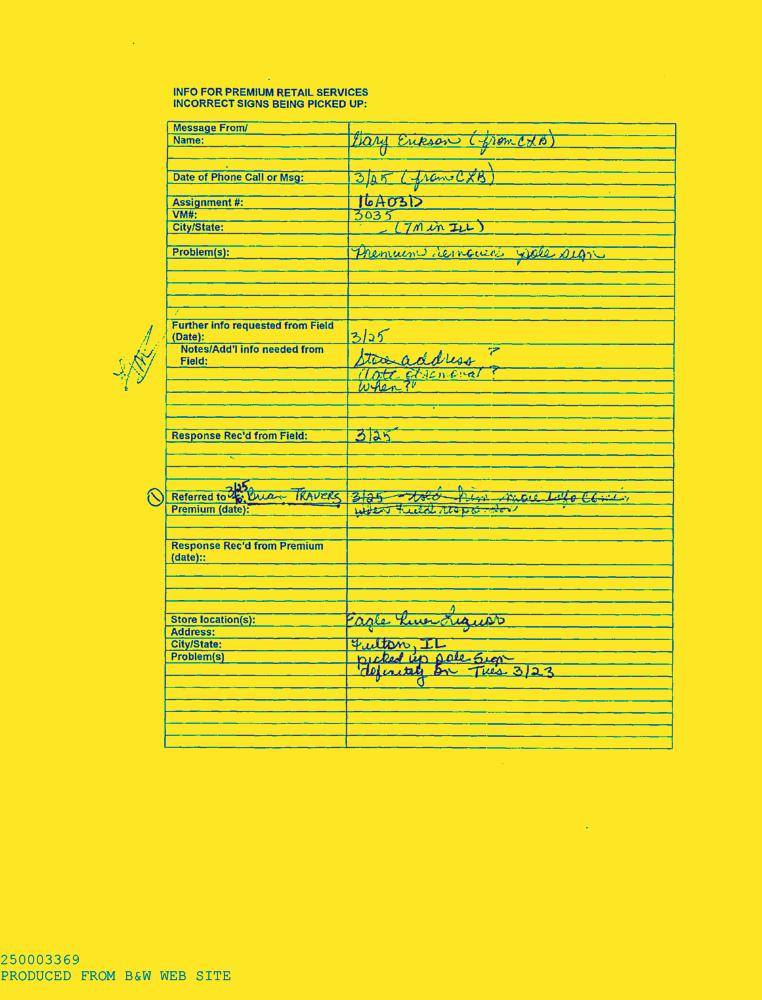 INFO FOR PREMIUM RETAIL SERVICES
INCORRECT SIGNS BEING PICKED UP:
Message From/
Name: Gary Erikson (from CXB)
Date of Phone Call or Msg: 3/25 (from CXB)
Assignment #: 16A03D
VM#: 3035
City/State: (7M in ILL)
Problem(s): Premium removing pole sign
Further info requested from Field
(Date): 3/25
Notes/Add'l info needed from
Field: Store address?
Date of removal?
When?
Response Rec'd from Field: 3/25
1 Referred to 3/25 Brian TRAVERS 3/25 told him more info coming
Premium (date): when field responds
Response Rec'd from Premium
(date)::
Store location(s): Eagle River Liquors
Address:
City/State: Fulton, IL
Problem(s) picked up pole sign
definitely on Tues 3/23
250003369
PRODUCED FROM B&W WEB SITE